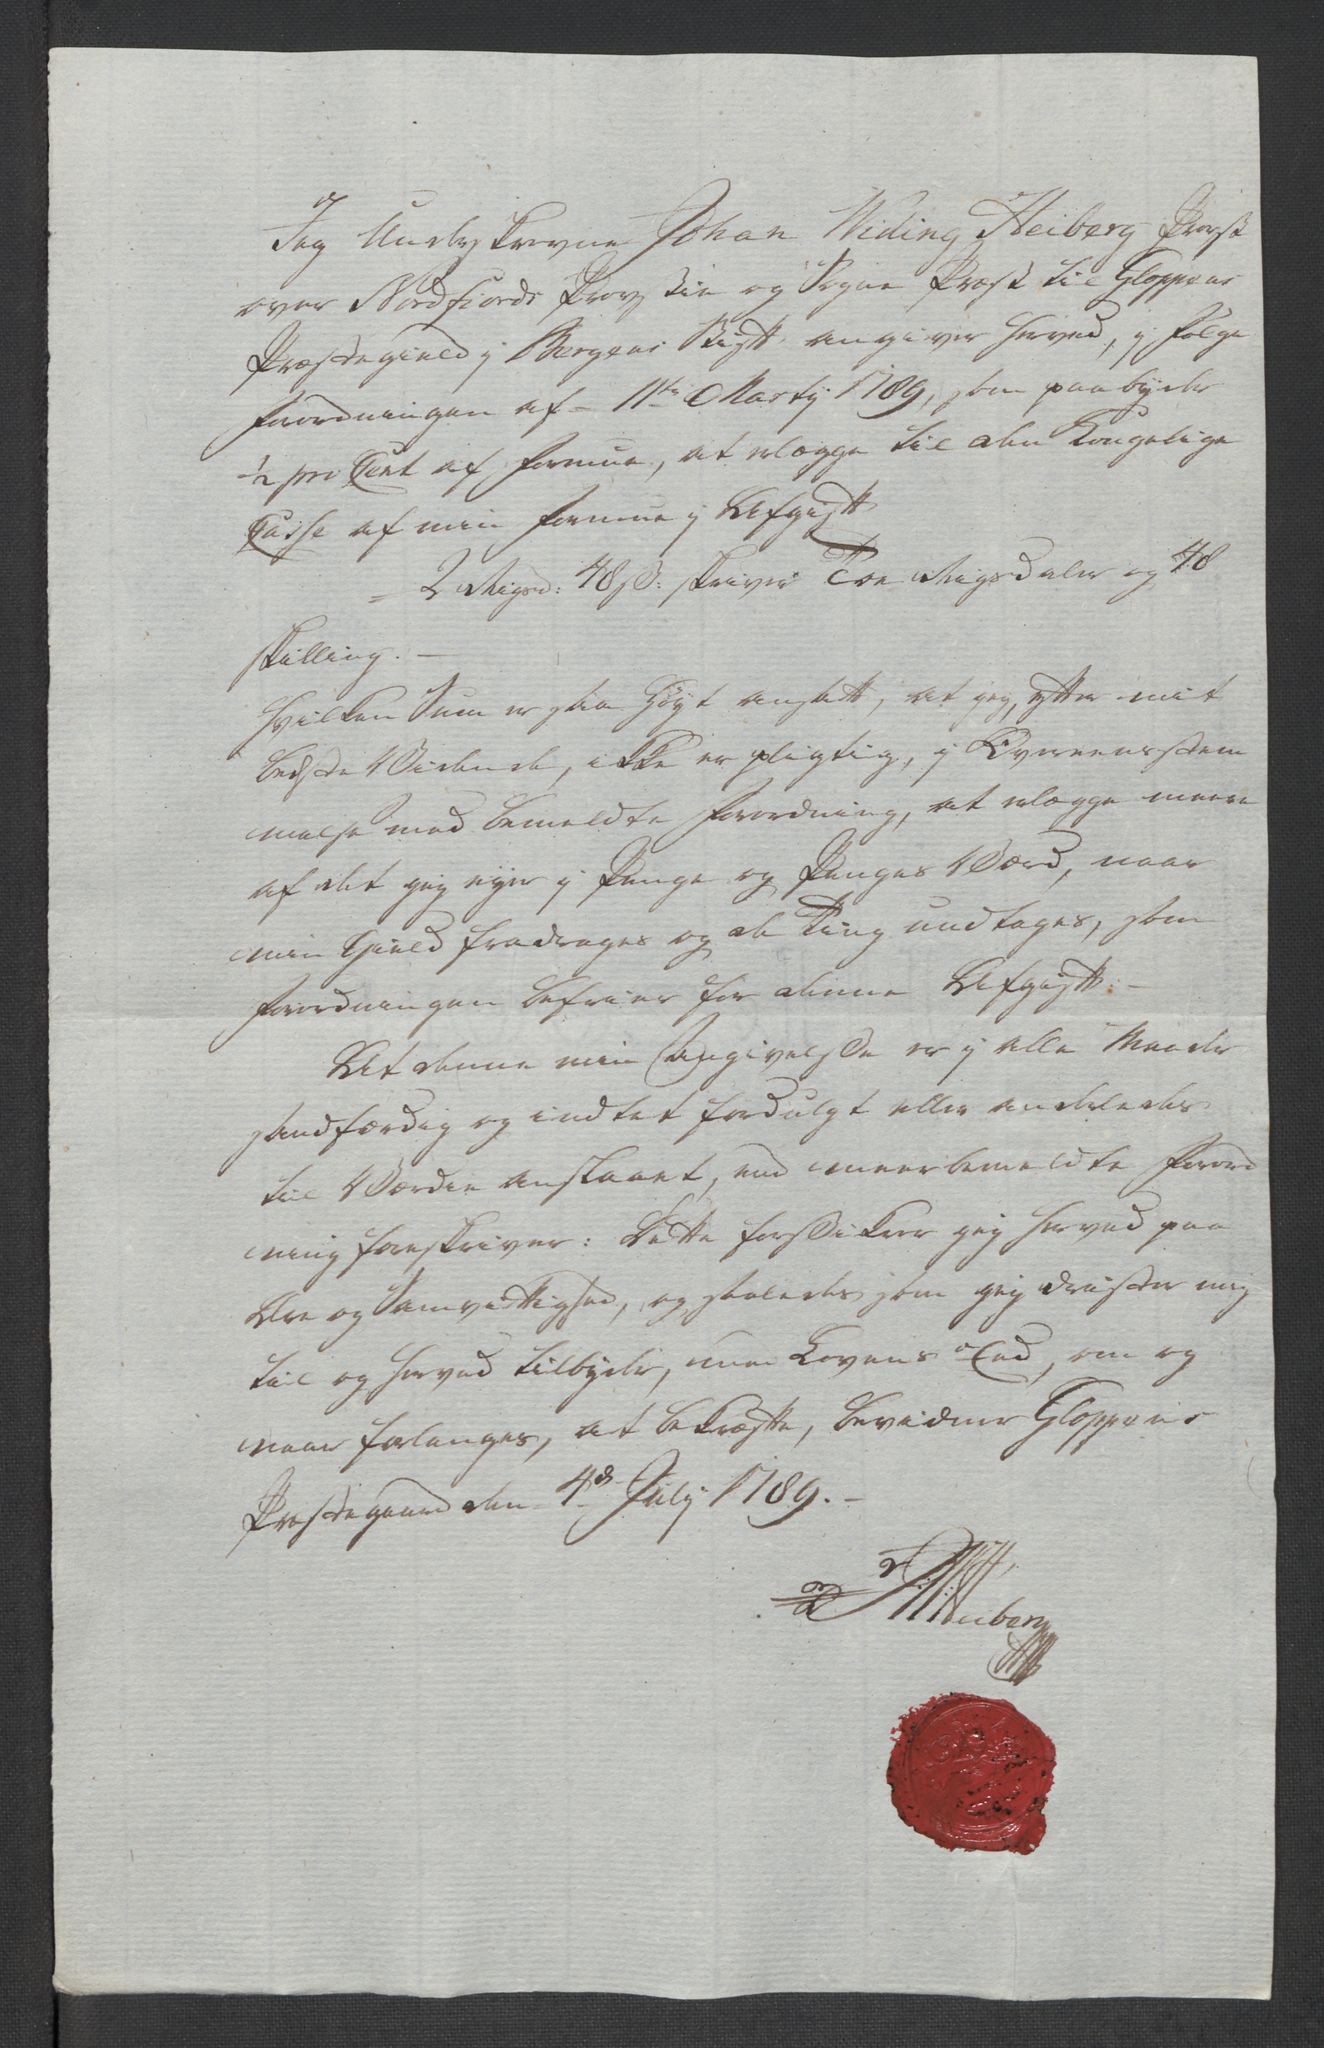 Jeg Underskrevne Johan Widing Heiberg Provst
over Nordfiords Provstie og Sogne Præst til Gloppens
Præstegield j Bergens Stigtt angiver herved, j følge
Forordningen af 11te Martÿ 1789, som paabÿder
1/2 pro Cent af Formue, at erlægge til den Kongelige
Casse af min Formue j Afgigtt
= 2 Rigsd: 48 s: skriver Toe Rigsdaler og 48
skilling. —
hvilken Sum er saa høÿt ansatt, at jeg, efter mit
bedste Vidende, ikke er pligtig, j Overeensstem
melse med bemeldte Forordning, at erlægge meere
af det jeg ejer j Penge og Penges Værd, naar
min Gield fradrages og de Ting undtages, som
Forordningen befrier for denne Afgigtt. —
At denne min Angivelsse er j alle Maader
sandfærdig og indtet fordulgt eller anderledes
til Værdie anslaaet, end meerbemeldte Forord
ning foreskriver: Dette forssikrer jeg herved paa
Ære og Samvittighed, og saaledes som jeg trøster mig
til og herved tilbÿder, med Lovens Eed, om og
naar forlanges, at bekræfte, bevidner Gloppens
Præstegaard den 4de Julÿ 1789. —
Heiberg